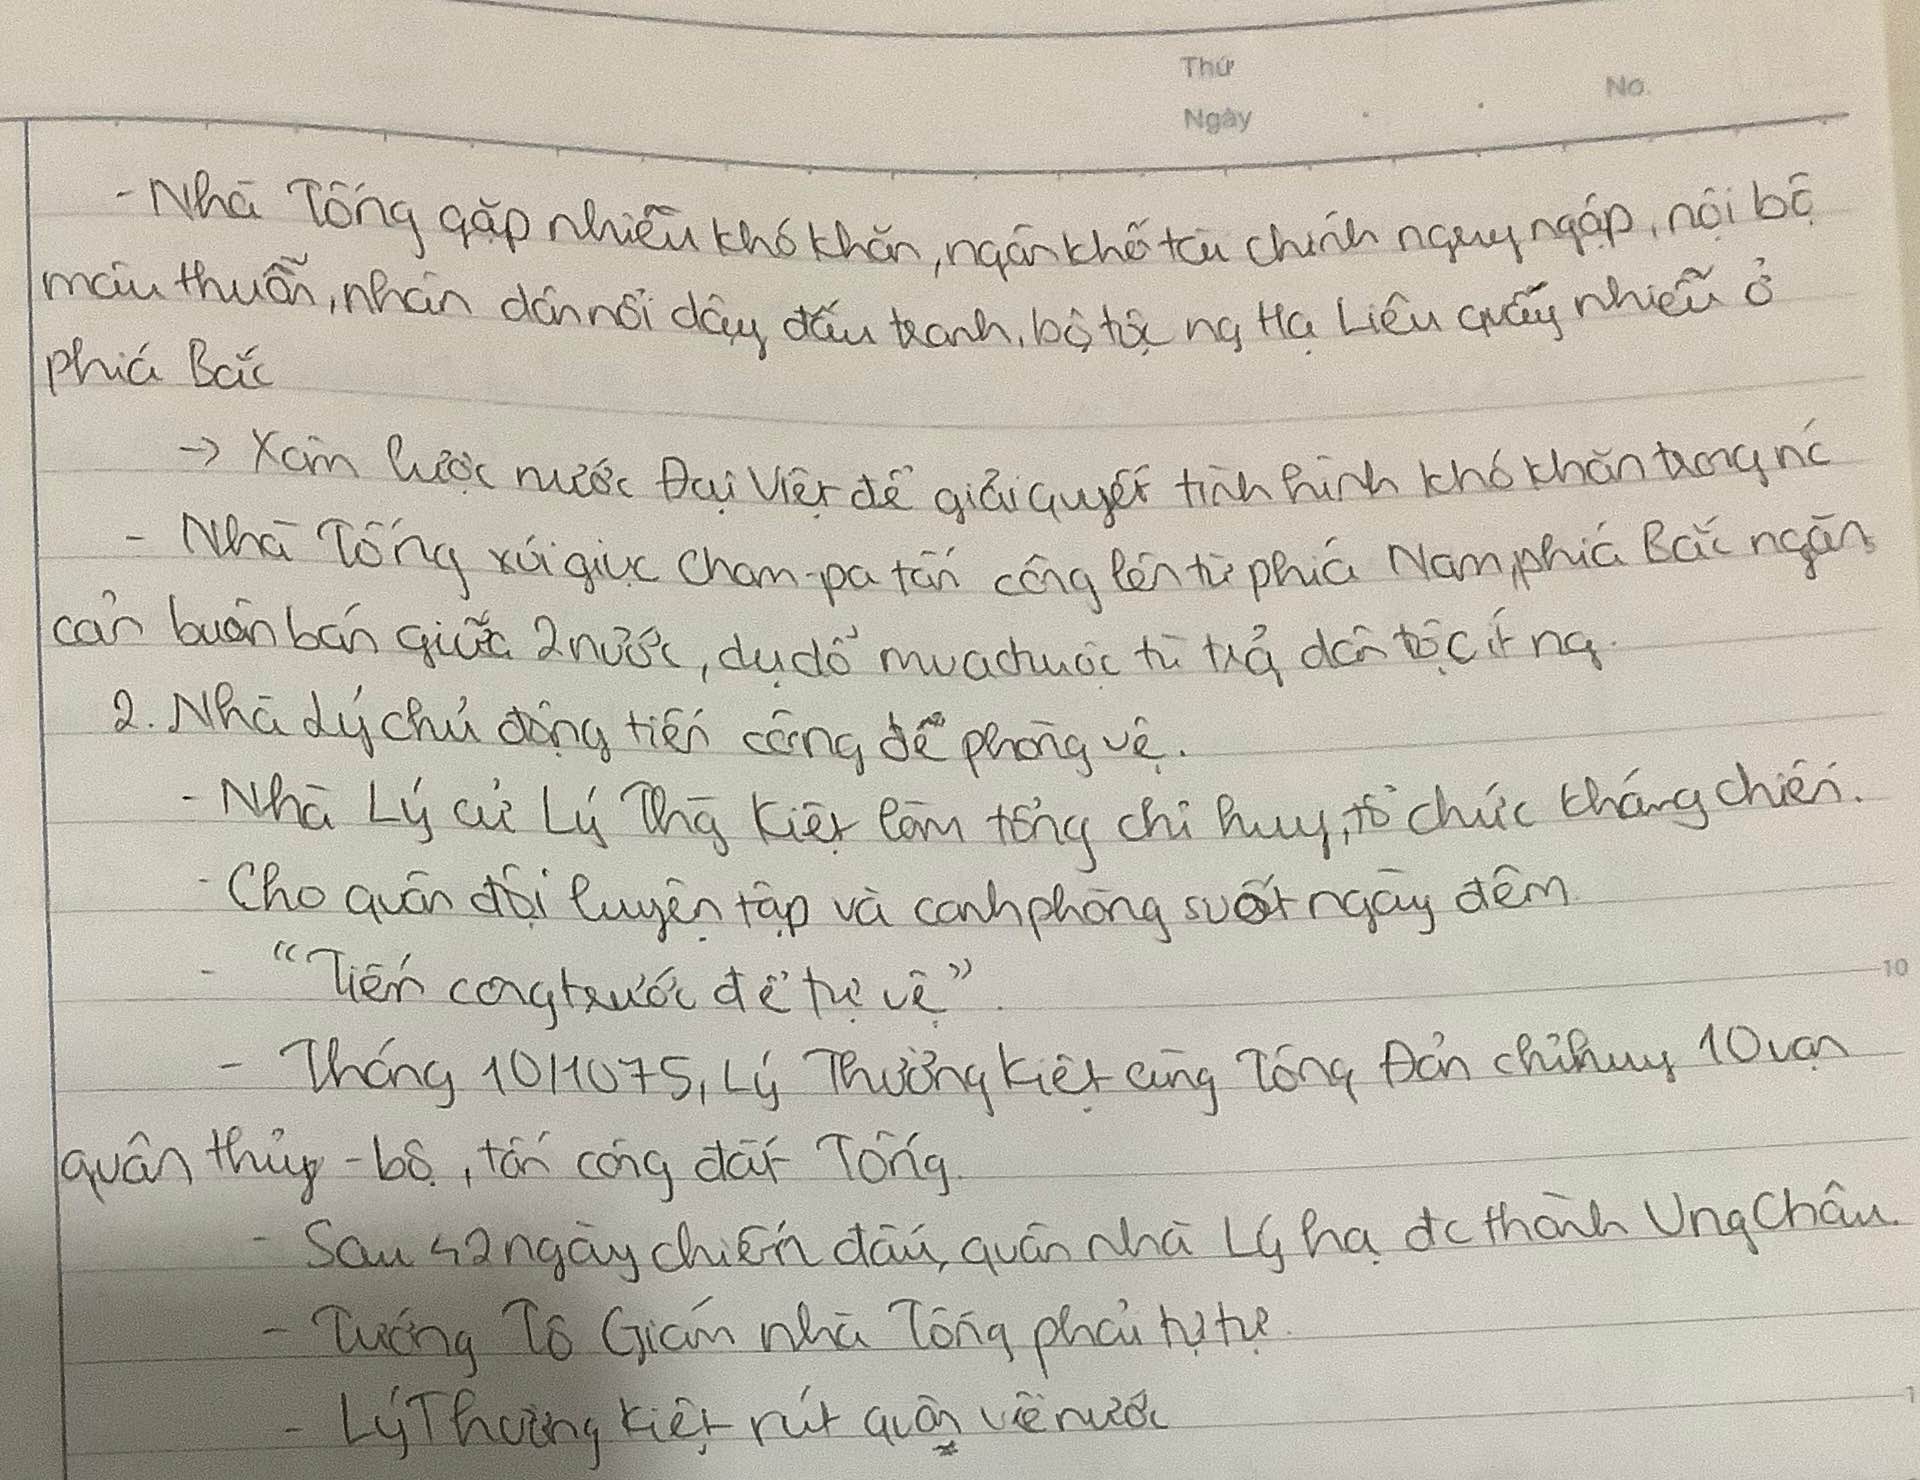 Thứ
No.
Ngày
- Nhà Tống gặp nhiều khó khăn, ngân khố tài chính nguy ngập, nội bộ
mâu thuẫn, nhân dân nổi dậy đấu tranh, bộ tộc ng Hạ Liêu quấy nhiễu ở
phía Bắc
→ Xâm lược nước Đại Việt để giải quyết tình hình khó khăn trong nc
- Nhà Tống xúi giục Cham-pa tấn công lên từ phía Nam, phía Bắc ngăn
cản buôn bán giữa 2 nước, dụ dỗ mua chuộc tù trưởng dân tộc ít ng.
2. Nhà Lý chủ động tiến công để phòng vệ.
- Nhà Lý cử Lý Thg Kiệt làm tổng chỉ huy, tổ chức kháng chiến.
- Cho quân đội luyện tập và canh phòng suốt ngày đêm
- "Tiến công trước để tự vệ".
- Tháng 10/1075, Lý Thường Kiệt cùng Tông Đản chỉ huy 10 vạn
quân thủy - bộ, tấn công đất Tống.
- Sau 42 ngày chiến đấu, quân nhà Lý hạ đc thành Ung Châu.
- Tướng Tô Giám nhà Tống phải tự tự.
- Lý Thường Kiệt rút quân về nước
10